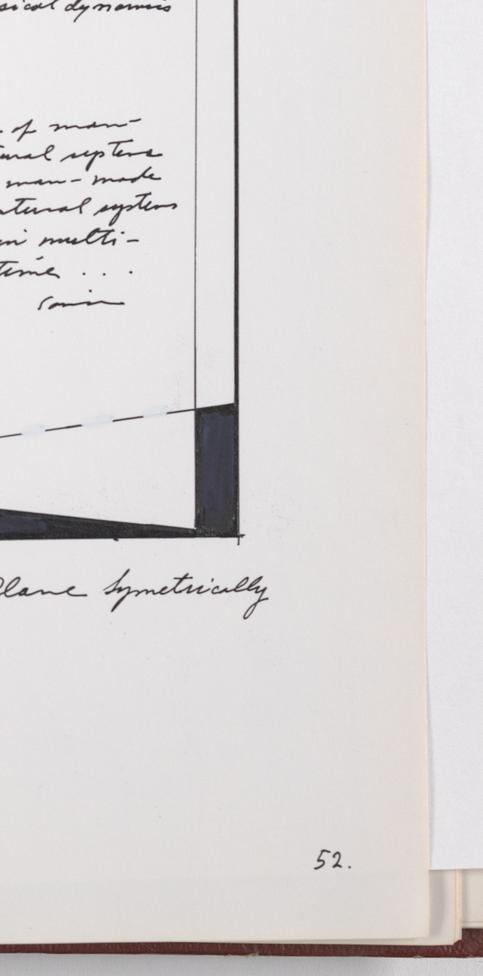 sical dynamics
of man-
tural systems
man-made
atural systems
in multi-
time . . .
Plane Symetrically
52.